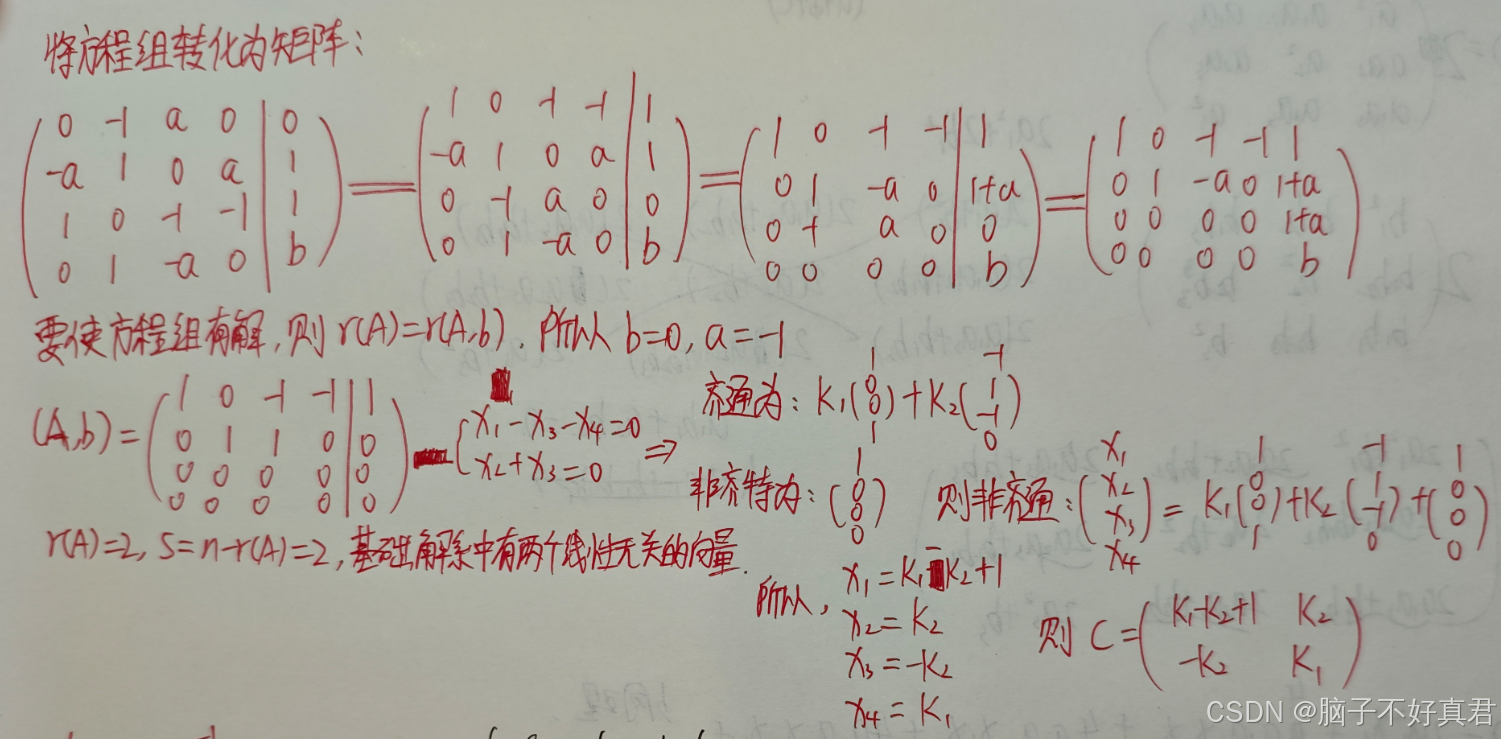 将方程组转化为矩阵:
( 0 -1 a 0 | 0 ) = ( 1 0 -1 -1 | 1 ) = ( 1 0 -1 -1 | 1 ) = ( 1 0 -1 -1 1 )
( -a 1 0 a | 1 ) ( -a 1 0 a | 1 ) ( 0 1 -a 0 | 1+a ) ( 0 1 -a 0 1+a )
( 1 0 -1 -1 | 1 ) ( 0 -1 a 0 | 0 ) ( 0 -1 a 0 | 0 ) ( 0 0 0 0 1+a )
( 0 1 -a 0 | b ) ( 0 1 -a 0 | b ) ( 0 0 0 0 | b ) ( 0 0 0 0 b )
要使方程组有解,则 r(A)=r(A,b). 所以 b=0, a=-1
(A,b)= ( 1 0 -1 -1 | 1 )
( 0 1 1 0 | 0 )
( 0 0 0 0 | 0 )
( 0 0 0 0 | 0 )
{ x₁-x₃-x₄=0
x₂+x₃=0 ⇒
齐通为: K₁(1 0 0 1)+K₂(-1 1 -1 0)
非齐特为: (1 0 0 0)
则非齐通: (x₁ x₂ x₃ x₄) = K₁(1 0 0 1)+K₂(-1 1 -1 0)+(1 0 0 0)
r(A)=2, S=n-r(A)=2, 基础解系中有两个线性无关的向量.
所以, x₁=K₁-K₂+1
x₂=K₂
x₃=-K₂
x₄=K₁
则 C= ( K₁-K₂+1 K₂ )
( -K₂ K₁ )
CSDN @脑子不好真君